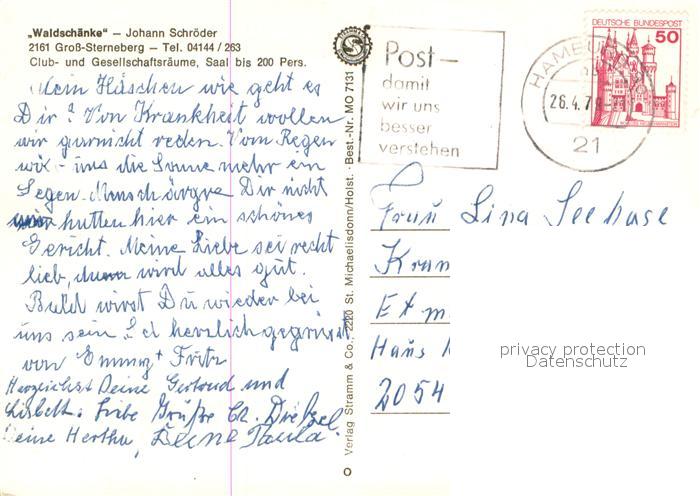 „Waldschänke“ – Johann Schröder
2161 Groß-Sterneberg – Tel. 04144 / 263
Club- und Gesellschaftsräume, Saal bis 200 Pers.
Mein Häschen wie geht es
Dir? Von Krankheit wollen
wir garnicht reden. Vom Regen
wix - uns die Sonne mehr ein
Segen. Mensch ärgre Dir nicht
hatten hier ein schönes
Gericht. Meine Liebe sei recht
lieb, dann wird alles gut.
Bald wirst Du wieder bei
uns sein. herzlich gegrüsst
von Emmy + Fritz
Herzlichst Deine Gertrud und
Lisbeth. Liebe Grüße
Deine Hertha, Deine Paula.
Verlag Stramm & Co., 2220 St. Michaelisdonn/Holst. · Best.-Nr. MO 7131
Post–
damit
wir uns
besser
verstehen
HAMBURG
26.4.79
21
DEUTSCHE BUNDESPOST
50
Frau Lina Seehase
Kran
Etm
Haus
2054
privacy protection
Datenschutz